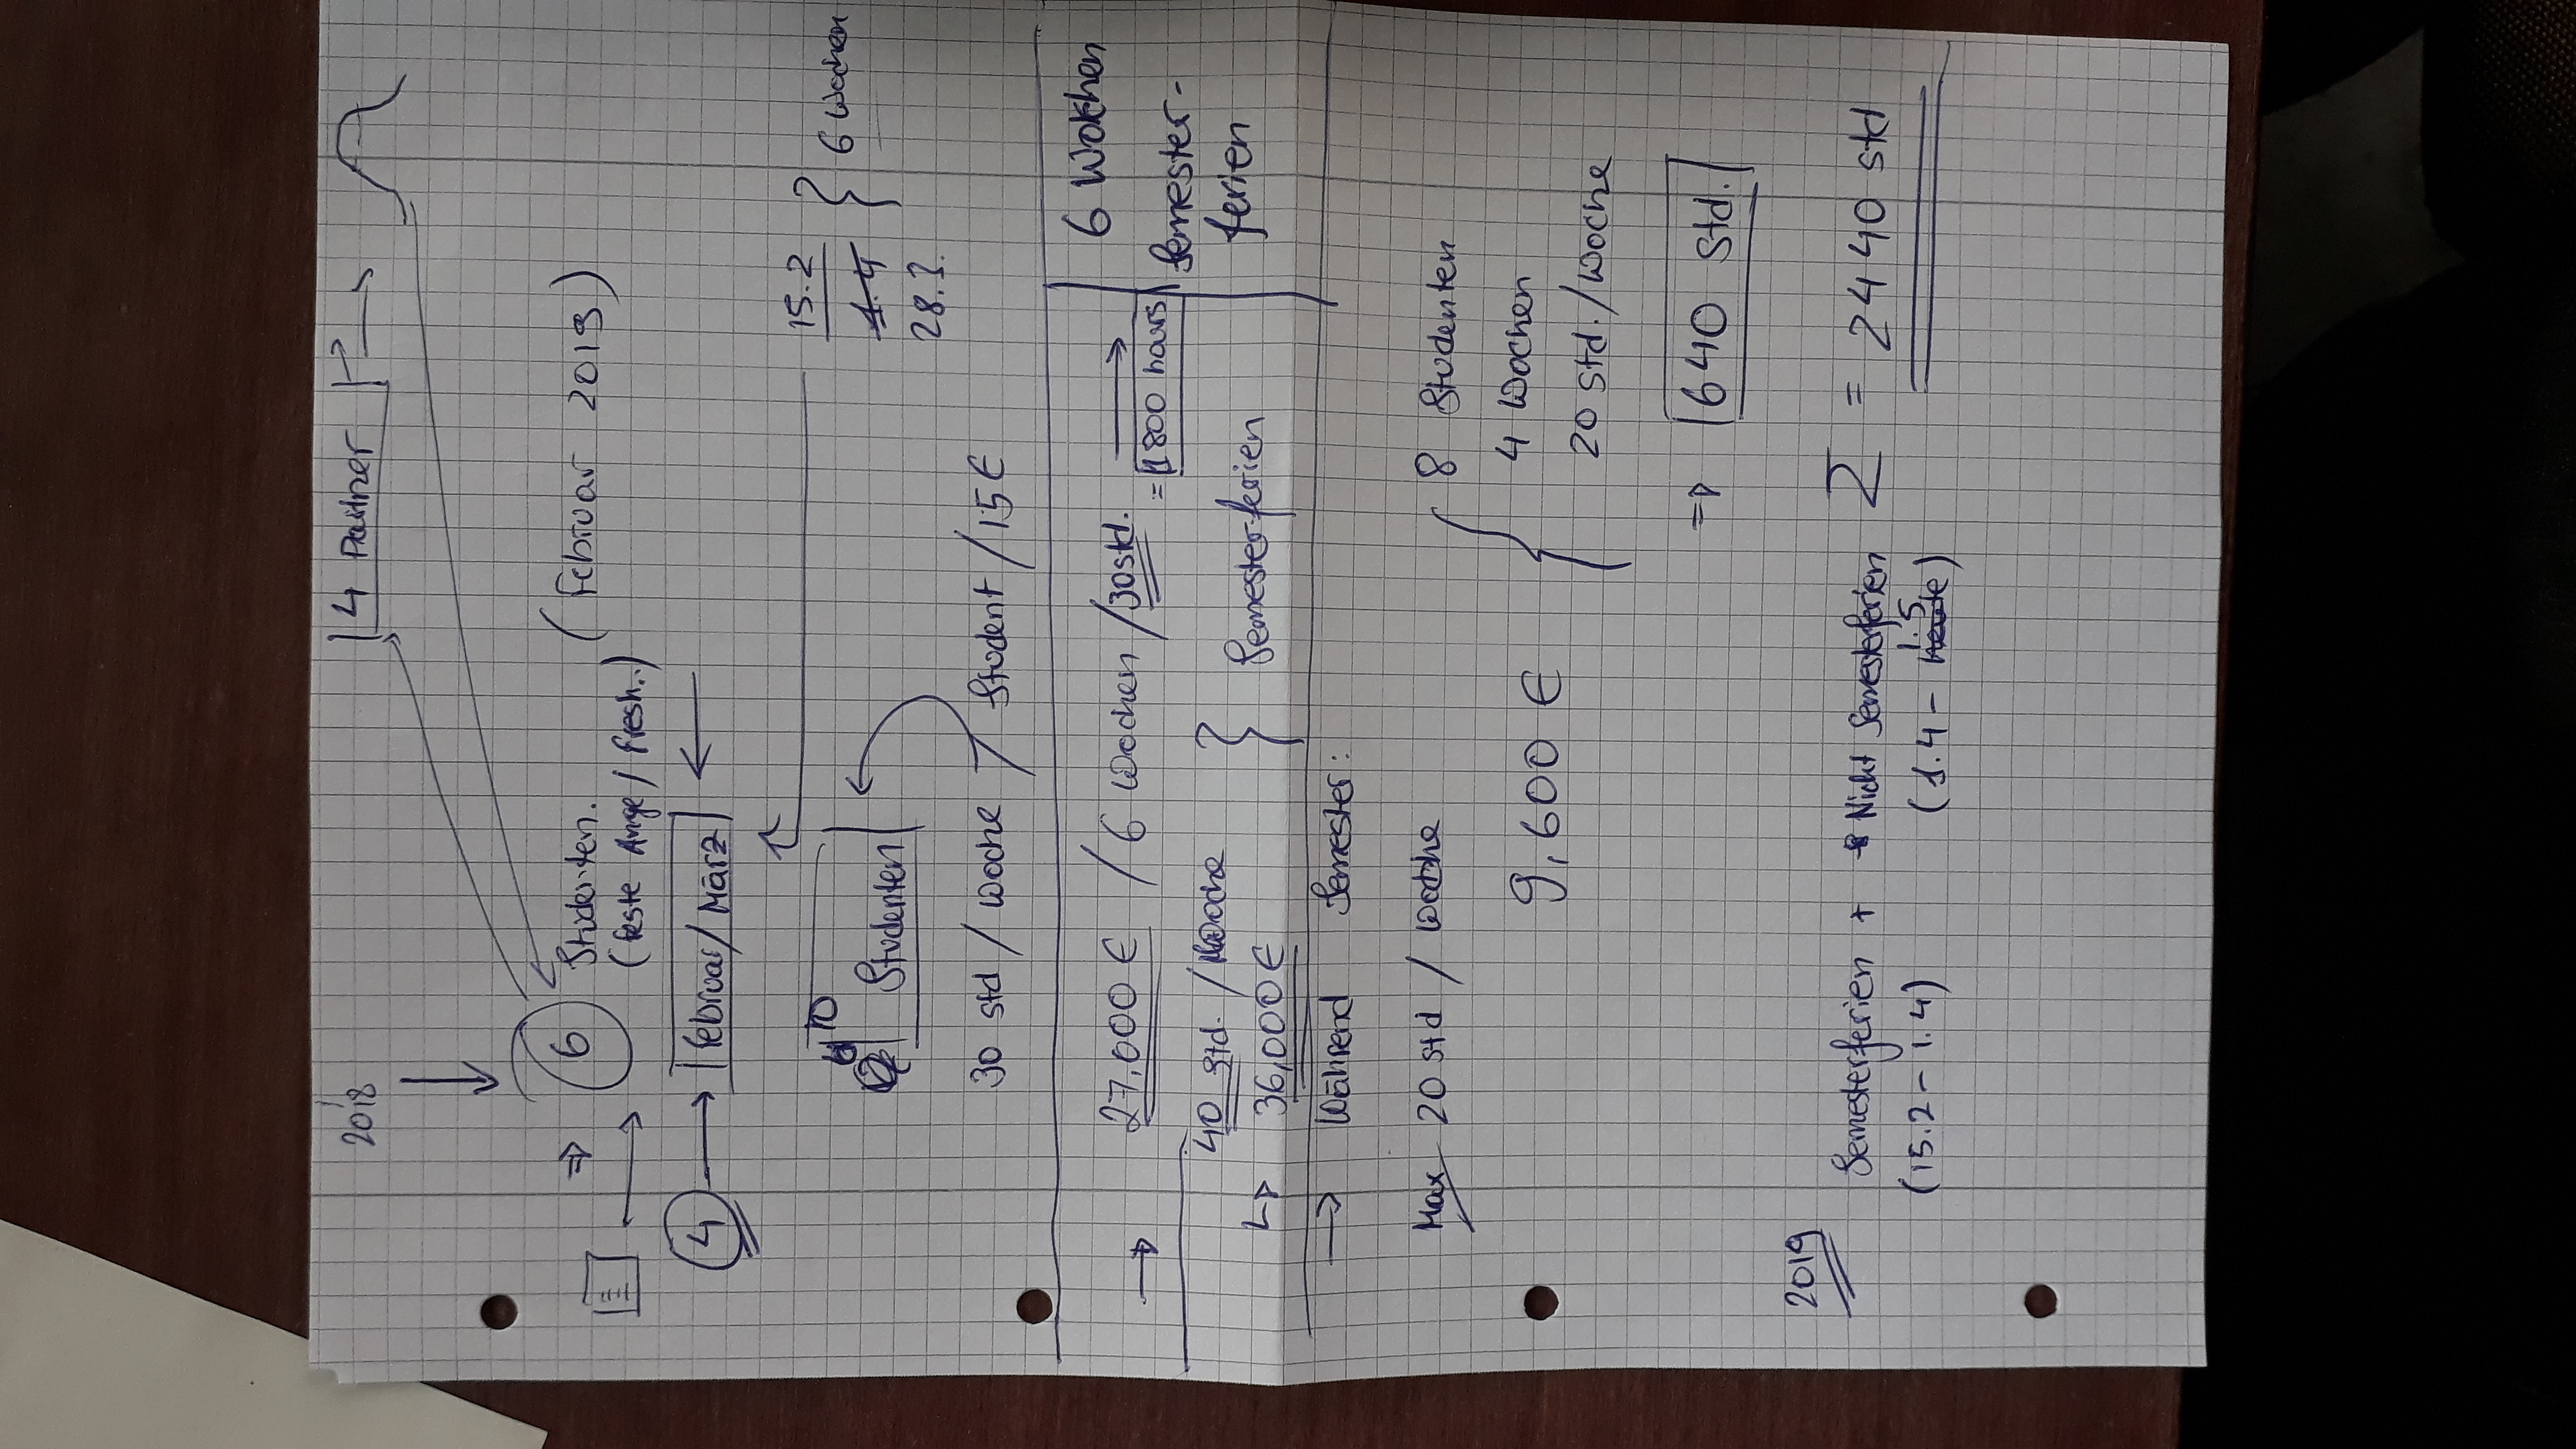 2018
4 Partner
6 Studenten. (Februar 2019)
(feste Ange / Fresh..)
4 Februar / März
15.2
10
1.4
6 Wochen
Studenten
28.3.
30 std / Woche / Student / 15€
27,000 € / 6 Wochen / 30 std.
= 1800 hours
6 Wochen
Semester-
ferien
40 std. / Woche
36,000€
Semesterferien
Während Semester:
Max 20 std / Woche
8 Studenten
4 Wochen
9,600 €
20 std. / Woche
=> 640 Std.
2019
Semesterferien + Nicht Semesterferien Σ = 2440 std
(15.2 - 1.4)
1.5
(1.4 - heute)